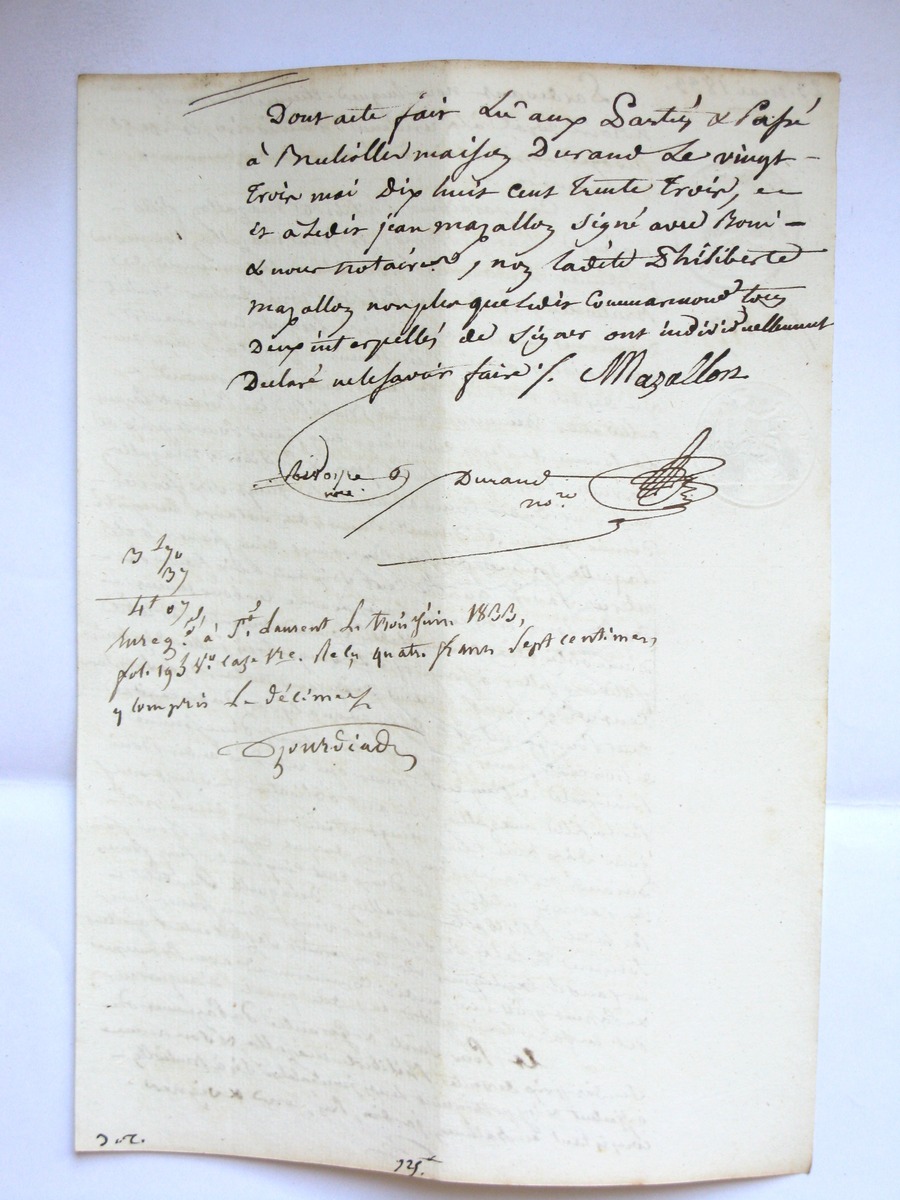 Dont acte fait Lu aux Parties & Passé
à Brulioles maison Durand Le vingt-
trois mai Dix huit cent trente trois, et
et a Ledit jean mazallon signé avec
& nous notaires, non ladite Philiberte
mazallon non plus que Ledit Commarmond tous
Deux interpellés de signer ont individuellement
Declaré ne le savoir faire ./. Mazallon
Durand
nore
3f 70
37
4f 07
Enregé à St. Laurent Le trois juin 1833,
fol. 193 Vo case 1re. Reçu quatre francs Sept centimes,
y compris Le décime
325